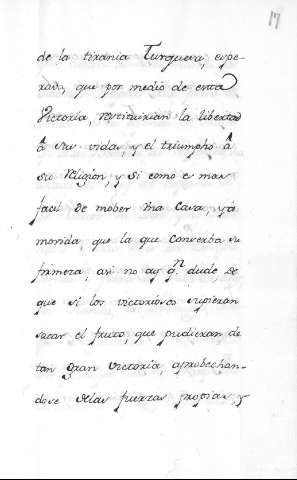 17
de la tirania Turquesa, espe-
rada, que por medio de esta
Victoria, restituirian la libertad
â sus vidas, y el triumpho â
su religion, y si como e mas
facil de mober vna casa, yâ
movida, que la que conserba su
firmeza, asi no ay qn dude, de
que si los victoriosos supieran
sacar el fruto, que pudieran de
tan gran victoria, aprobechan-
dose delas fuerzas propias, y